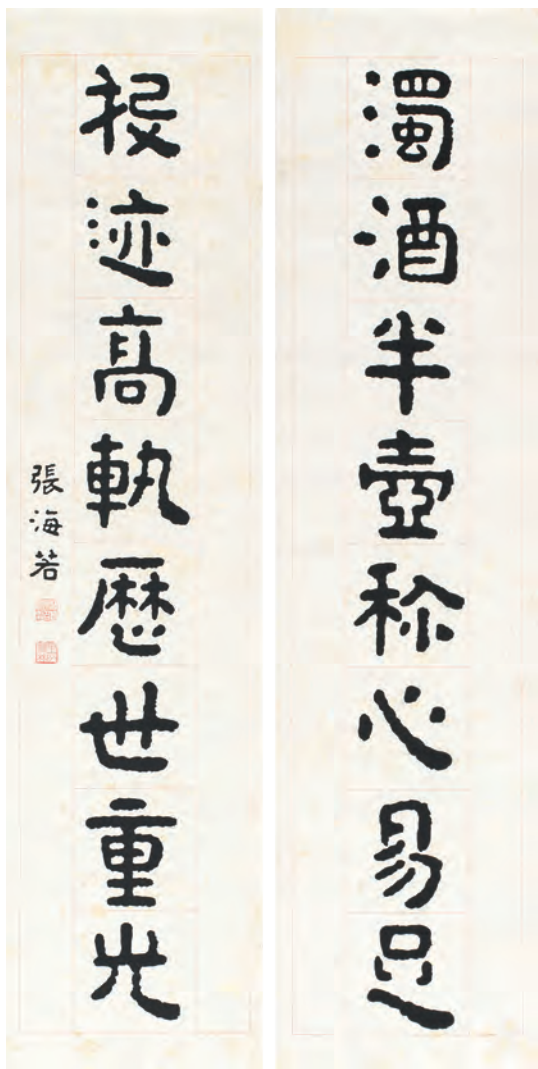 濁酒半壺称心易足
投迹高軌歴世重光
張海若